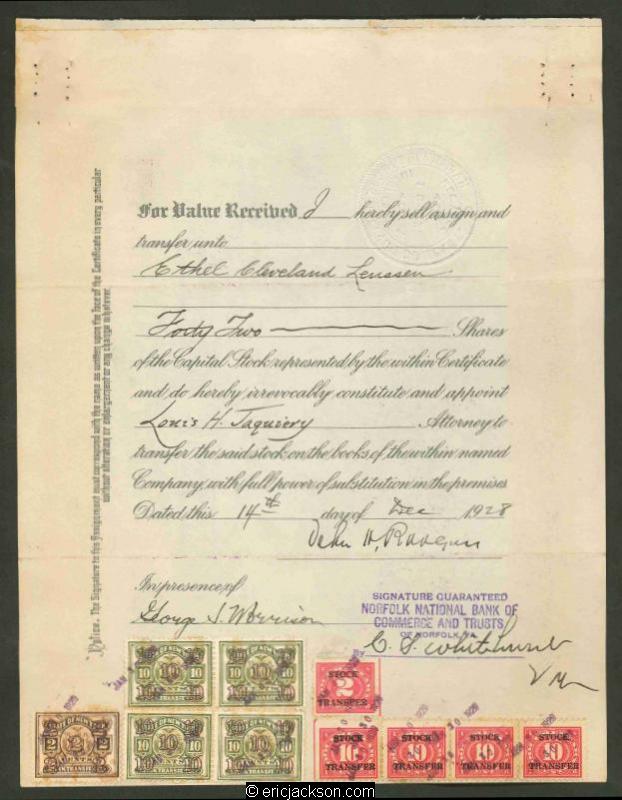 For Value Received I hereby sell assign and
transfer unto
Ethel Cleveland Lenssen
Forty Two Shares
of the Capital Stock represented by the within Certificate
and do hereby irrevocably constitute and appoint
Louis H. Taquiery Attorney to
transfer the said stock on the books of the within named
Company with full power of substitution in the premises
Dated this 14th day of Dec 1928
John H.
In presence of
George S. Morrison
Notice. The Signature to this Assignment must correspond with the name as written upon the face of the Certificate in every particular
without alteration or enlargement or any change whatever.
SIGNATURE GUARANTEED
NORFOLK NATIONAL BANK OF
COMMERCE AND TRUSTS
OF NORFOLK, VA.
C. S. Whitehurst
10 10 10 10
STOCK
2
TRANSFER
STATE OF NEW
2 2 2
10 10 10 10
STOCK STOCK STOCK STOCK
10 10 10
TRANSFER TRANSFER TRANSFER TRANSFER
www.ericjackson.com